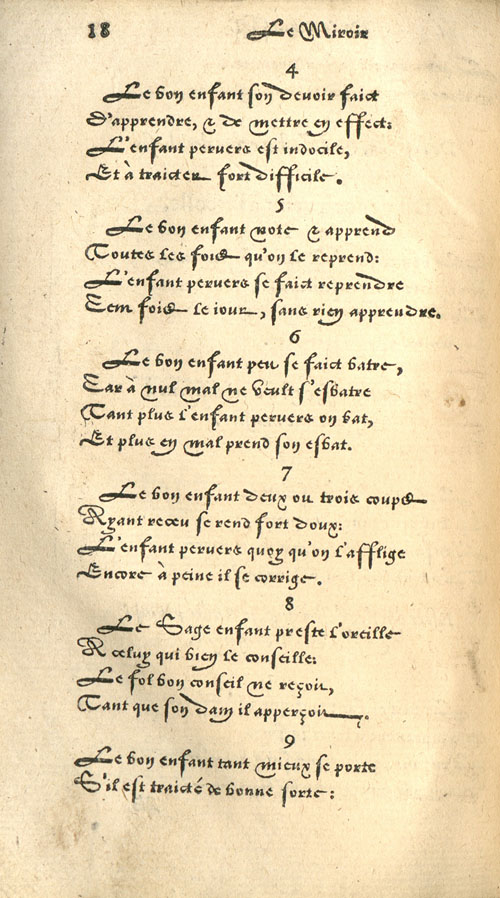 18 Le Miroir
4
Le bon enfant son devoir faict
D'apprendre, & de mettre en effect:
L'enfant pervers est indocile,
Et à traicter fort difficile.
5
Le bon enfant note & apprend
Toutes les fois qu'on le reprend:
L'enfant pervers se faict reprendre
Cent fois le iour, sans rien apprendre.
6
Le bon enfant peu se faict batre,
Car à nul mal ne veult s'esbatre
Tant plus l'enfant pervers on bat,
Et plus en mal prend son esbat.
7
Le bon enfant deux ou trois coups
Ayant receu se rend fort doux:
L'enfant pervers quoy qu'on l'afflige
Encore à peine il se corrige.
8
Le Sage enfant preste l'oreille
A celuy qui bien le conseille:
Le fol bon conseil ne reçoit,
Tant que son dam il apperçoit.
9
Le bon enfant tant mieux se porte
S'il est traicté de bonne sorte: